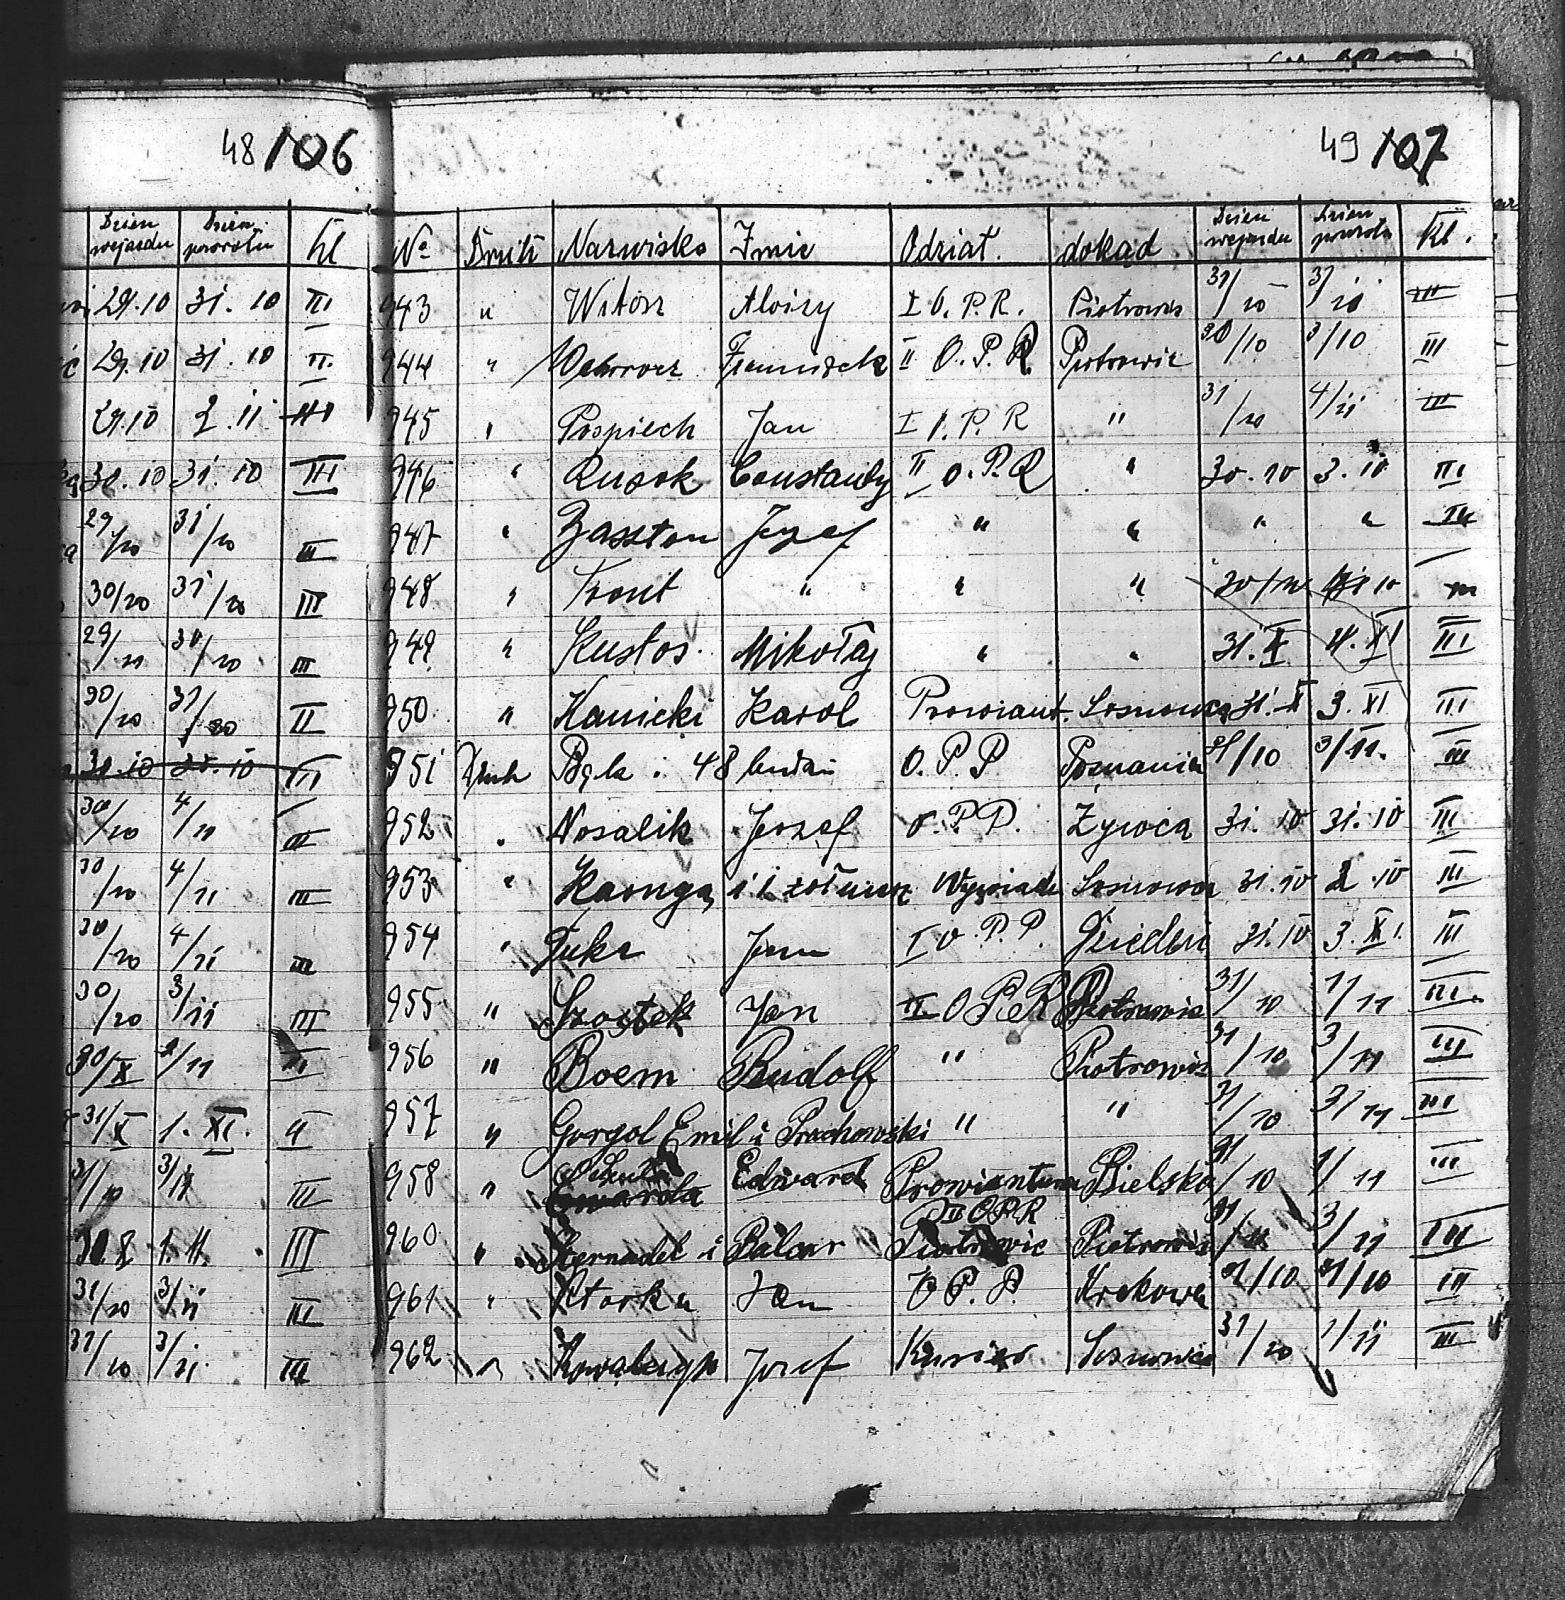 48 106
49 107
Dzień wyjazdu Dzień powrotu Kl
No Druh Nazwisko Imie Odział. dokąd Dzień wyjazdu Dzień powrotu Kl.
29.10 31.10 III
943 " Witosz Aloizy I O.P.R. Piotrowic 31/10 III
29.10 31.10 II.
944 " Franciszek II O.P.R. Piotrowic 30/10 3/10 III
29.10 2.11 III
945 " Pospiech Jan I O.P.R " 31/10 4/11 III
30.10 31.10 III
946 " Rusok Constanty II O.P.R " 30.10 3.10 III
29/10 31/10 III
947 " Zasston Jozef " " " " III
30/10 31/10 III
948 " Front " " " III
29/10 30/10 III
949 " Kustos Mikołaj " " 31.X 4.XI III
30/10 31/10 II
950 " Kanicki Karol Prowiant. Sosnowca 31.X 3.XI III
31.10 31.10 III
951 Druh Bąk i 48 ludzi O.P.P Poznania 31/10 3/11. III
30/10 4/11 III
952 " Nosalik Jozef O.P.P. Żywca 31.10 31.10 III
30/10 4/11 III
953 " i 1 żołnierz Wywiadu Sosnowca 31.10 2.10 III
30/10 4/11 III
954 " Jan I O.P.P. Dziedzic 31.10 3.XI. III
30/10 3/11 III
955 " Szostek Jan II O.P.R Piotrowic 31/10 1/11 III.
30/X 2/11 II
956 " Boem Rudolf " Piotrowic 31/10 3/11 III
31/X 1.XI. II
957 " Gorgol Emil i Prochowski " " 31/10 3/11 III
31/10 3/11 III
958 " Edward Prowiantura Bielsko 31/10 1/11 III
II OPR
1.11. III
960 " i Balcar Piotrowic Piotrowic 3/11 III
31/10 3/11 III
961 " Jan O.P.P. Krakowa 31/10 31/10 III
31/10 3/11 III
962 " Kowalczyk Jozef Kurier Sosnowiec 31/10 1/11 III